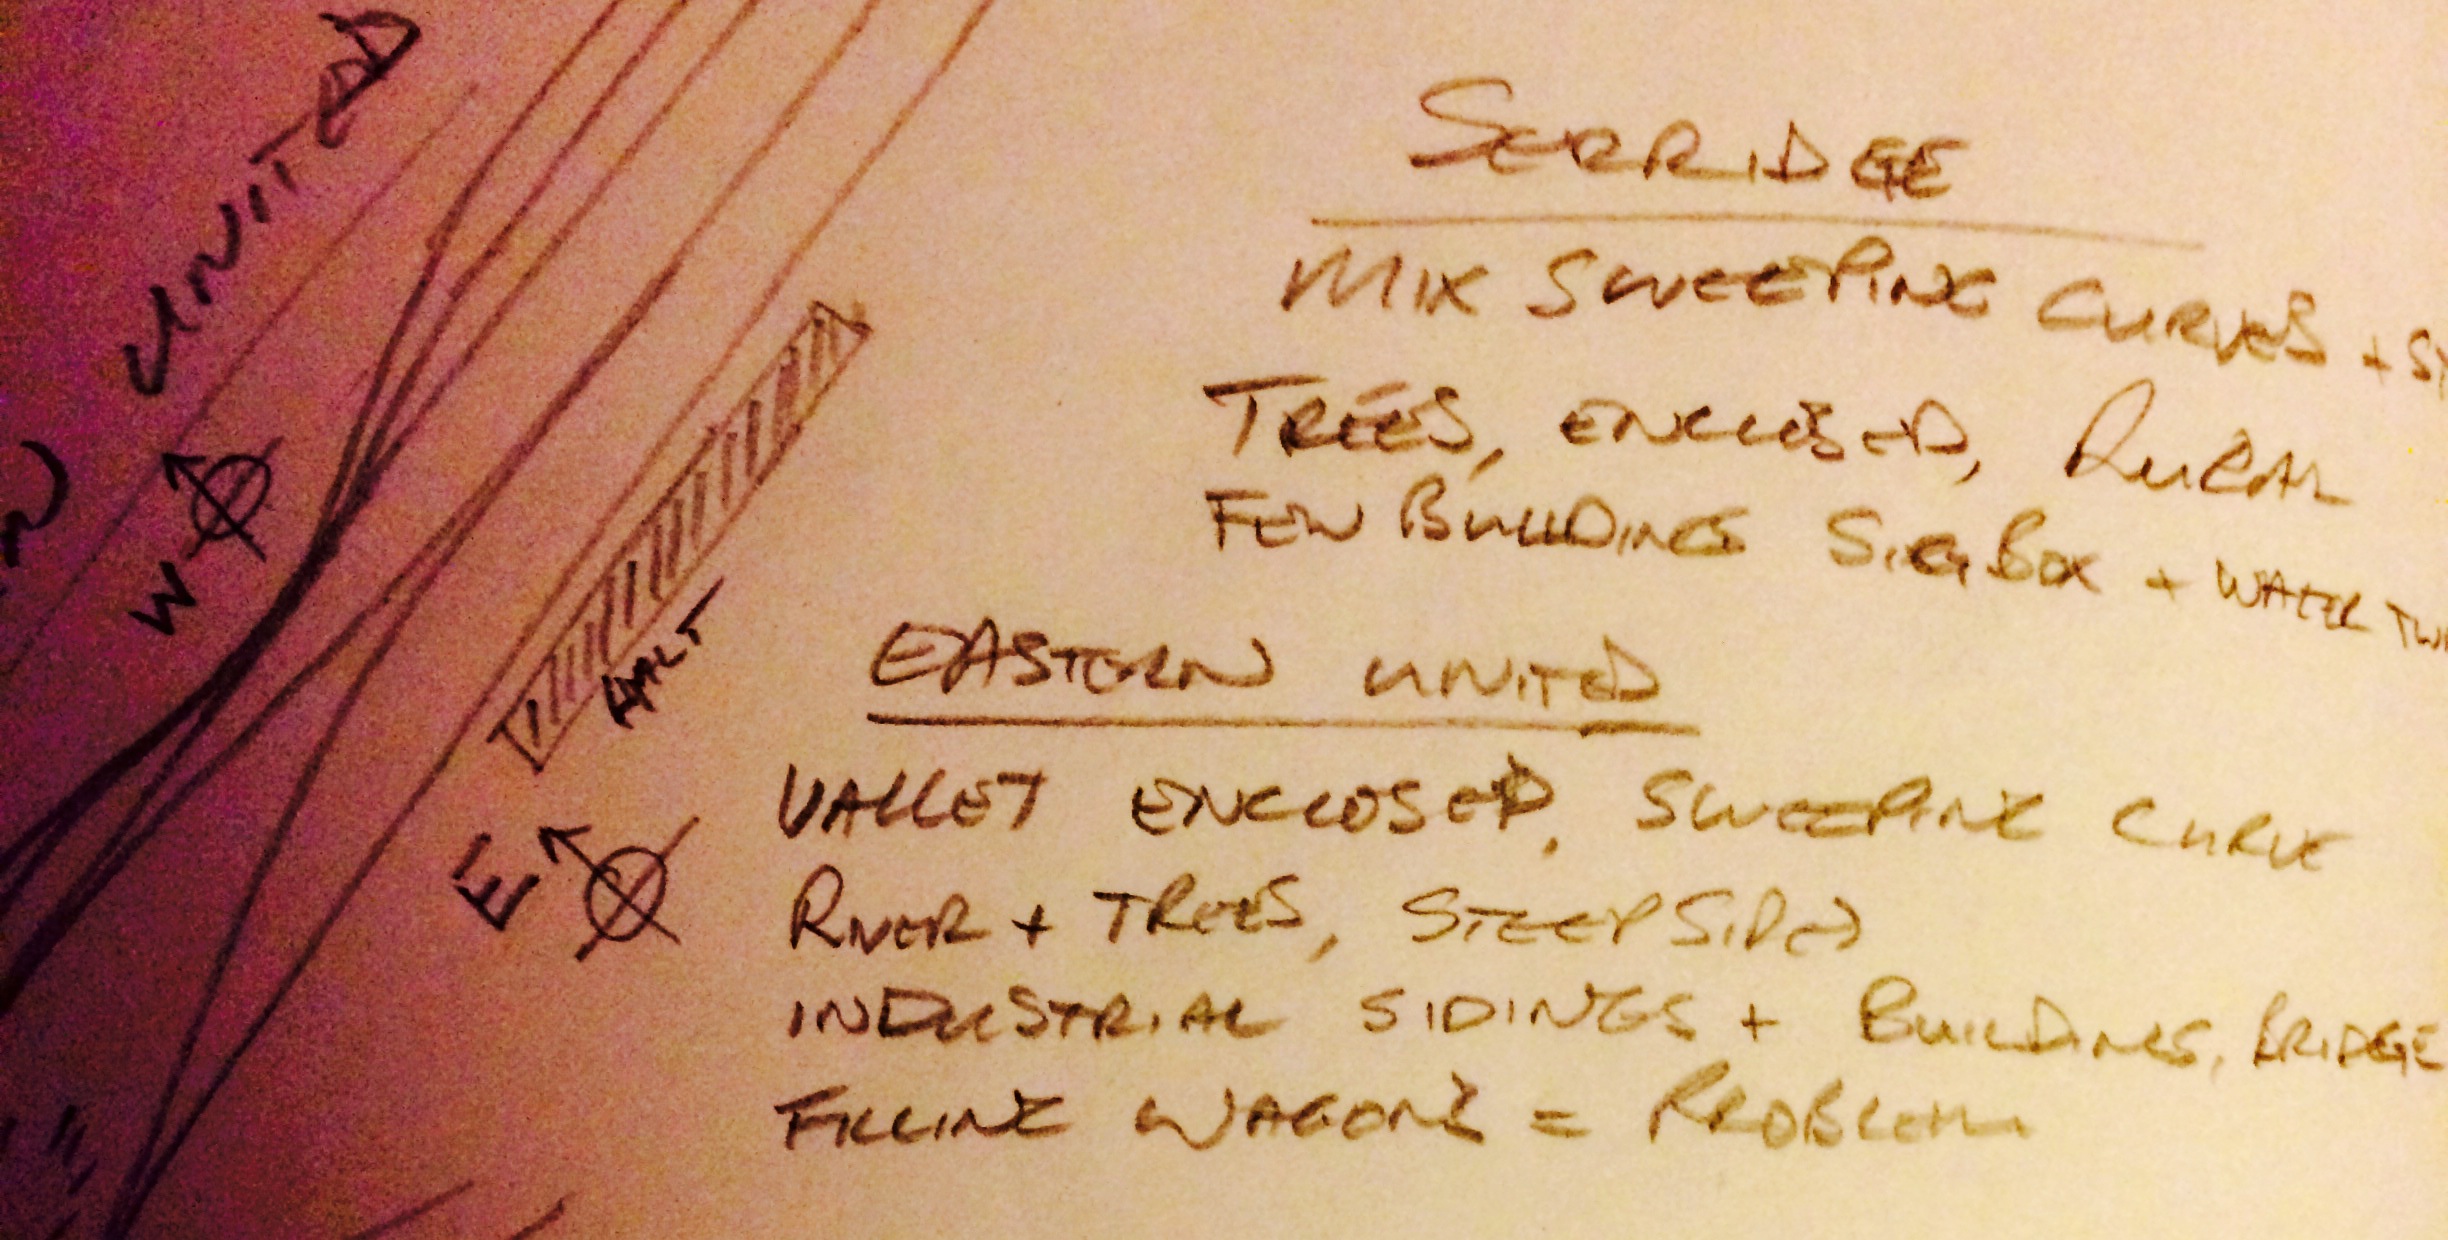 UNITED
W
HALT
E
SERRIDGE
MIX SWEEPING CURVES + ST
TREES, ENCLOSED, RURAL
FEW BUILDINGS SIG BOX + WATER TW
EASTERN UNITED
VALLEY ENCLOSED, SWEEPING CURVE
RIVER + TREES, STEEP SIDED
INDUSTRIAL SIDINGS + BUILDINGS, BRIDGE
FILLING WAGONS = PROBLEM